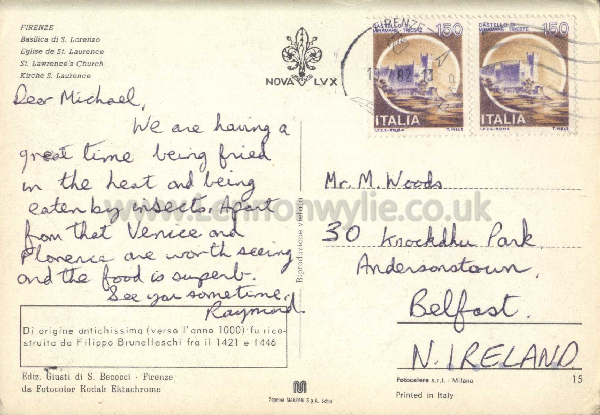 FIRENZE
Basilica di S. Lorenzo
Eglise de St. Laurence
St. Lawrence's Church
Kirche S. Laurence
NOVA LVX
FIRENZE
CASTELLO DI
MIRAMARE - TRIESTE
150
ITALIA
I.P.Z.S.-ROMA
T.MELE
CASTELLO DI
MIRAMARE - TRIESTE
150
ITALIA
I.P.Z.S.-ROMA
T.MELE
Dear Michael,
We are having a
great time being fried
in the heat and being
eaten by insects. Apart
from that Venice and
Florence are worth seeing
and the food is superb.
See you sometime,
Raymond.
Di origine antichissima (verso l'anno 1000) fu rico-
struita da Filippo Brunelleschi fra il 1421 e 1446
Ediz. Giusti di S. Becocci - Firenze
da Fotocolor Kodak Ektachrome
Riproduzione vietata
Mr. M. Woods
30 Knockdhu Park
Andersonstown,
Belfast.
N. IRELAND
Fotocelere s.r.l. - Milano
15
Printed in Italy